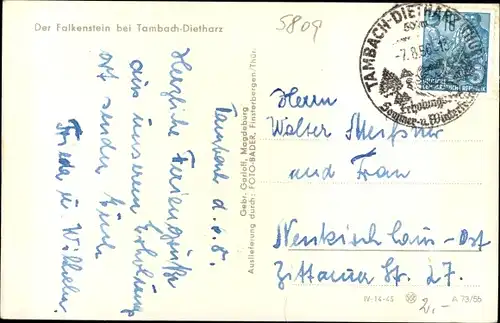 Der Falkenstein bei Tambach-Dietharz
5809
TAMBACH-DIETHARZ (THÜR
-7.8.5
Erholungs
Sommer- u. Winter
DEUTSCHE DEMOKRATISCHE REPUBLIK
Tambach d. 6. 8.
Herzliche Feriengrüße
aus unserem Erholungs
ort sendet Euch
Frieda u. Wilhelm.
Gebr. Garloff, Magdeburg
Auslieferung durch: FOTO-BÄDER, Finsterbergen/Thür.
Herrn
Walter
und Frau
Neukirch/Lausr-Ost
Zittauer Str. 27
IV-14-45
A 73/55
2,-